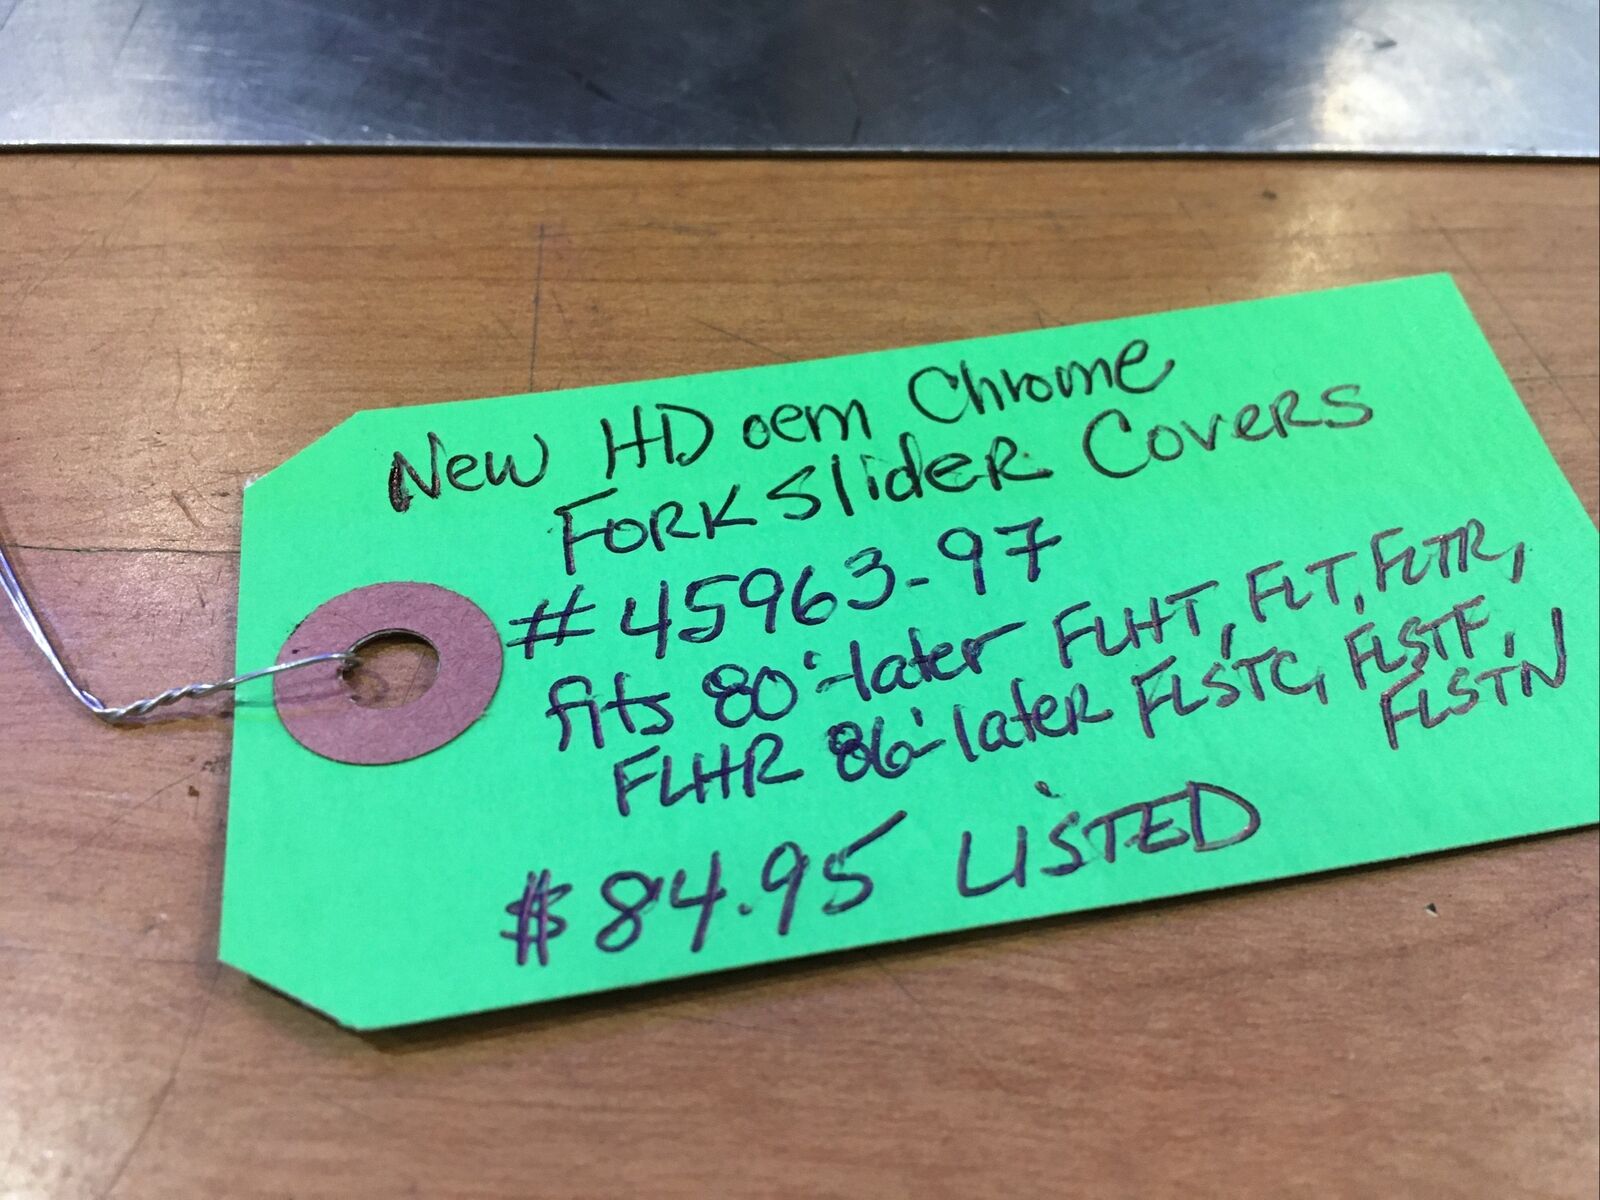 New HD oem Chrome
Fork Slider Covers
# 45963-97
fits 80'-later FLHT, FLT, FLTR,
FLHR 86'-later FLSTC, FLSTF,
FLSTN
$84.95 LISTED